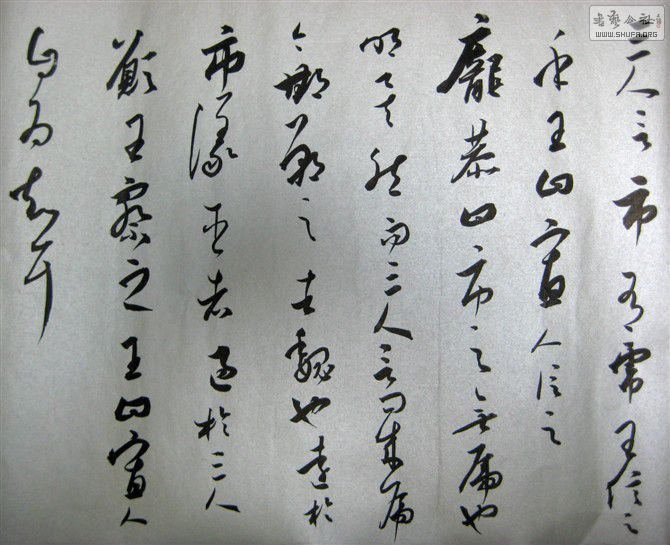 三人言市有虎王信之
乎王曰寡人信之
龐恭曰市之無虎也
明矣然而三人言而成虎
今邯鄲之去魏也遠於
市議臣者過於三人
願王察之王曰寡人
自为
书艺公社
WWW.SHUFA.ORG